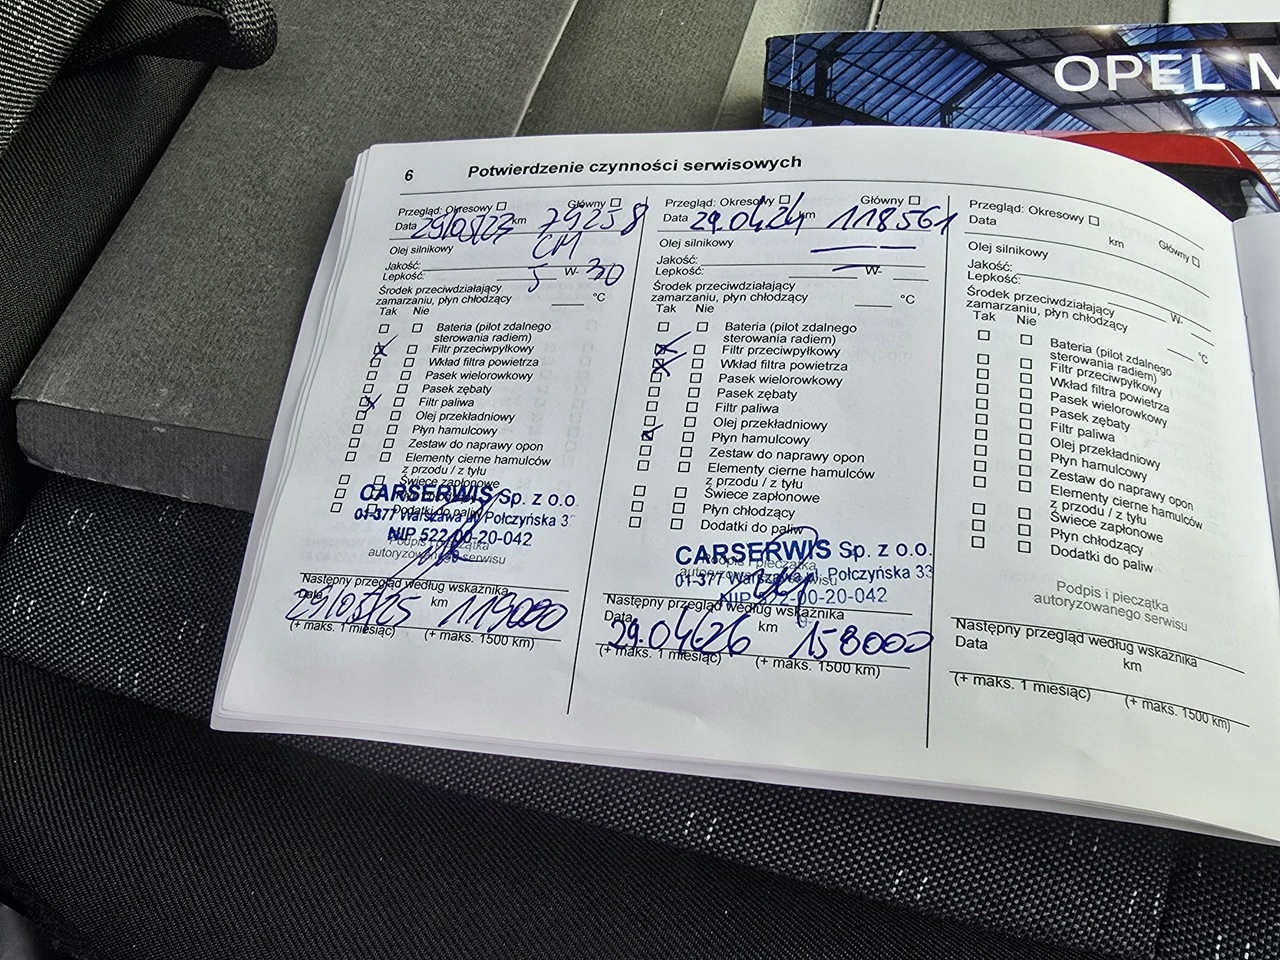 OPEL M
6 Potwierdzenie czynności serwisowych
Przegląd: Okresowy Główny
Data 29/05/23 km 79258
Olej silnikowy CM
Jakość:
Lepkość: 5 W- 30
Środek przeciwdziałający
zamarzaniu, płyn chłodzący °C
Tak Nie
Bateria (pilot zdalnego
sterowania radiem)
Filtr przeciwpyłkowy
Wkład filtra powietrza
Pasek wielorowkowy
Pasek zębaty
Filtr paliwa
Olej przekładniowy
Płyn hamulcowy
Zestaw do naprawy opon
Elementy cierne hamulców
z przodu / z tyłu
Świece zapłonowe
Dodatki do paliw
CARSERWIS Sp. z o.o.
01-377 Warszawa ul. Połczyńska 3
NIP 522-00-20-042
Podpis i pieczątka
autoryzowanego serwisu
Następny przegląd według wskaźnika
Data 29/05/25 km 119000
(+ maks. 1 miesiąc) (+ maks. 1500 km)
Przegląd: Okresowy Główny
Data 29.04.24 km 118561
Olej silnikowy
Jakość:
Lepkość: W-
Środek przeciwdziałający
zamarzaniu, płyn chłodzący °C
Tak Nie
Bateria (pilot zdalnego
sterowania radiem)
Filtr przeciwpyłkowy
Wkład filtra powietrza
Pasek wielorowkowy
Pasek zębaty
Filtr paliwa
Olej przekładniowy
Płyn hamulcowy
Zestaw do naprawy opon
Elementy cierne hamulców
z przodu / z tyłu
Świece zapłonowe
Płyn chłodzący
Dodatki do paliw
CARSERWIS Sp. z o.o.
Podpis i pieczątka
01-377 Warszawa ul. Połczyńska 33
autoryzowanego serwisu
NIP 522-00-20-042
Następny przegląd według wskaźnika
Data 29.04.26 km 158000
(+ maks. 1 miesiąc) (+ maks. 1500 km)
Przegląd: Okresowy Główny
Data km
Olej silnikowy
Jakość:
Lepkość: W-
Środek przeciwdziałający
zamarzaniu, płyn chłodzący °C
Tak Nie
Bateria (pilot zdalnego
sterowania radiem)
Filtr przeciwpyłkowy
Wkład filtra powietrza
Pasek wielorowkowy
Pasek zębaty
Filtr paliwa
Olej przekładniowy
Płyn hamulcowy
Zestaw do naprawy opon
Elementy cierne hamulców
z przodu / z tyłu
Świece zapłonowe
Płyn chłodzący
Dodatki do paliw
Podpis i pieczątka
autoryzowanego serwisu
Następny przegląd według wskaźnika
Data km
(+ maks. 1 miesiąc) (+ maks. 1500 km)